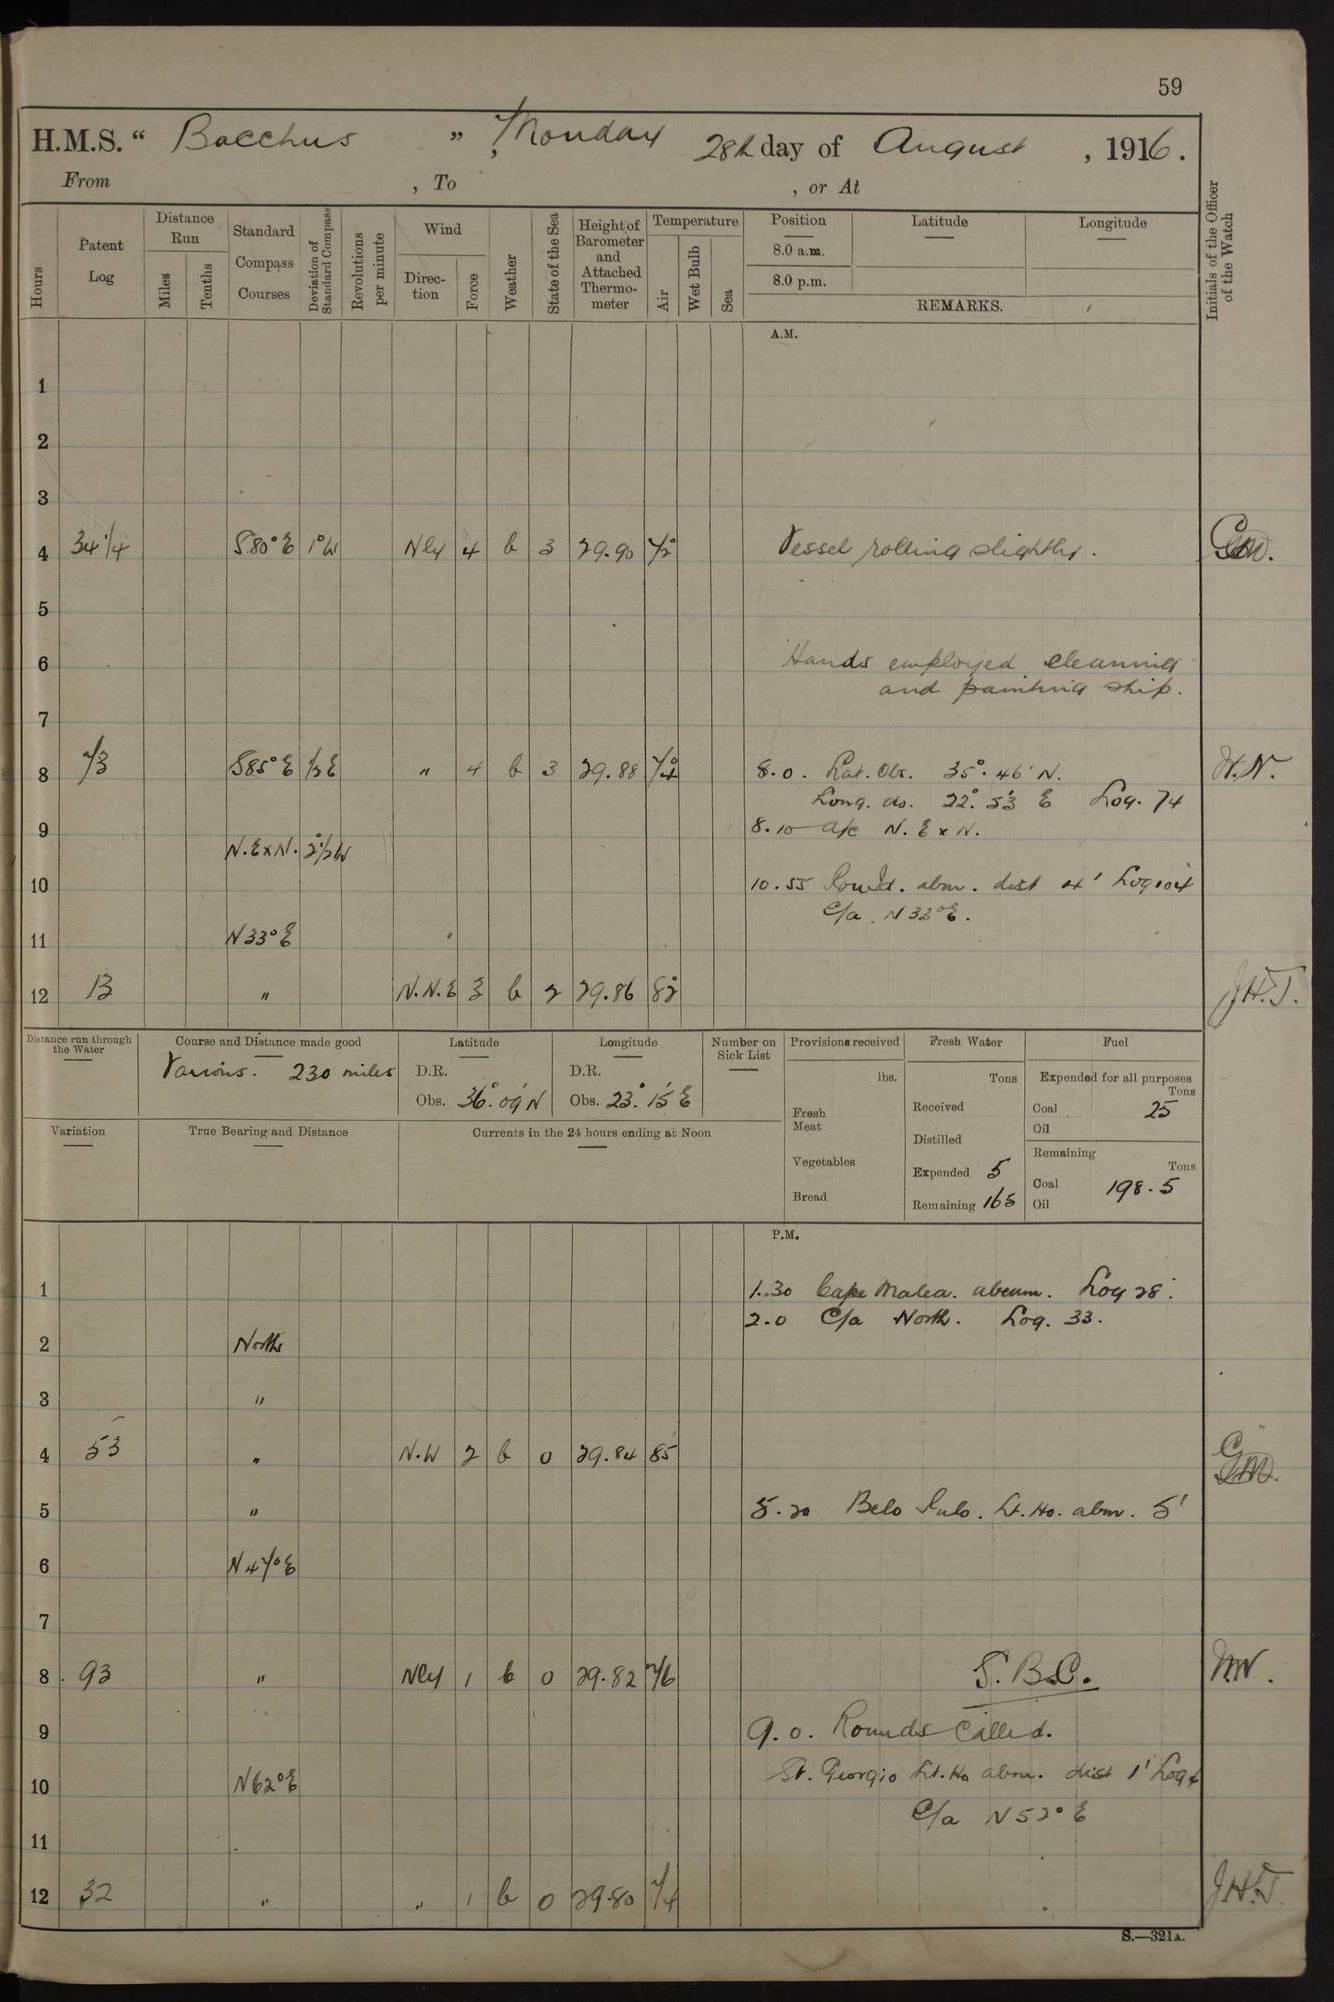 59
H.M.S. “ Bacchus ” , Monday 28th day of August , 1916.
From , To , or At
Hours
Patent Log
Distance Run
Miles
Tenths
Standard Compass Courses
Deviation of Standard Compass
Revolutions per minute
Wind
Direction
Force
Weather
State of the Sea
Height of Barometer and Attached Thermometer
Temperature
Air
Wet Bulb
Sea
Position Latitude Longitude
8.0 a.m.
8.0 p.m.
REMARKS.
Initials of the Officer of the Watch
A.M.
1
2
3
4 34 1/4 S80°E 1°W Nly 4 b 3 29.90 72° Vessel rolling slightly.
5
6 Hands employed cleaning
and painting ship.
7
8 73 S85°E 1/2 E " 4 b 3 29.88 74° 8.0. Lat. Obs. 35°.46' N. H.N.
Long. do. 22°.53' E Log. 74
8.10 a/c N.E x N.
9 N.E x N. 2°1/2 W
10 10.55 abm. dist 4' Log 104
C/a N33°E.
11 N33°E
12 13 " N.N.E 3 b 2 29.86 82° J.H.T.
Distance run through the Water
Course and Distance made good
Various. 230 miles
Latitude
D.R.
Obs. 36°.09' N
Longitude
D.R.
Obs. 23°.15' E
Number on Sick List
Provisions received
lbs.
Fresh Meat
Vegetables
Bread
Fresh Water
Tons
Received
Distilled
Expended 5
Remaining 165
Fuel
Expended for all purposes
Tons
Coal 25
Oil
Remaining
Tons
Coal 198.5
Oil
Variation
True Bearing and Distance
Currents in the 24 hours ending at Noon
P.M.
1 1.30 Cape Malea. abeam. Log 28.
2.0 C/a North. Log. 33.
2 North
3 "
4 53 " N.W 2 b 0 29.84 85
5 " 5.20 Belo Pulo. Lt. Ho. abm. 5'
6 N47°E
7
8 93 " Nly 1 b 0 29.82 76 S.B.C.
9 9.0. Rounds Called.
10 N62°E St. Giorgio Lt. Ho abm. dist 1' Log 4
C/a N52°E
11
12 32 " " 1 b 0 29.80 74 J.H.T.
S.—321A.